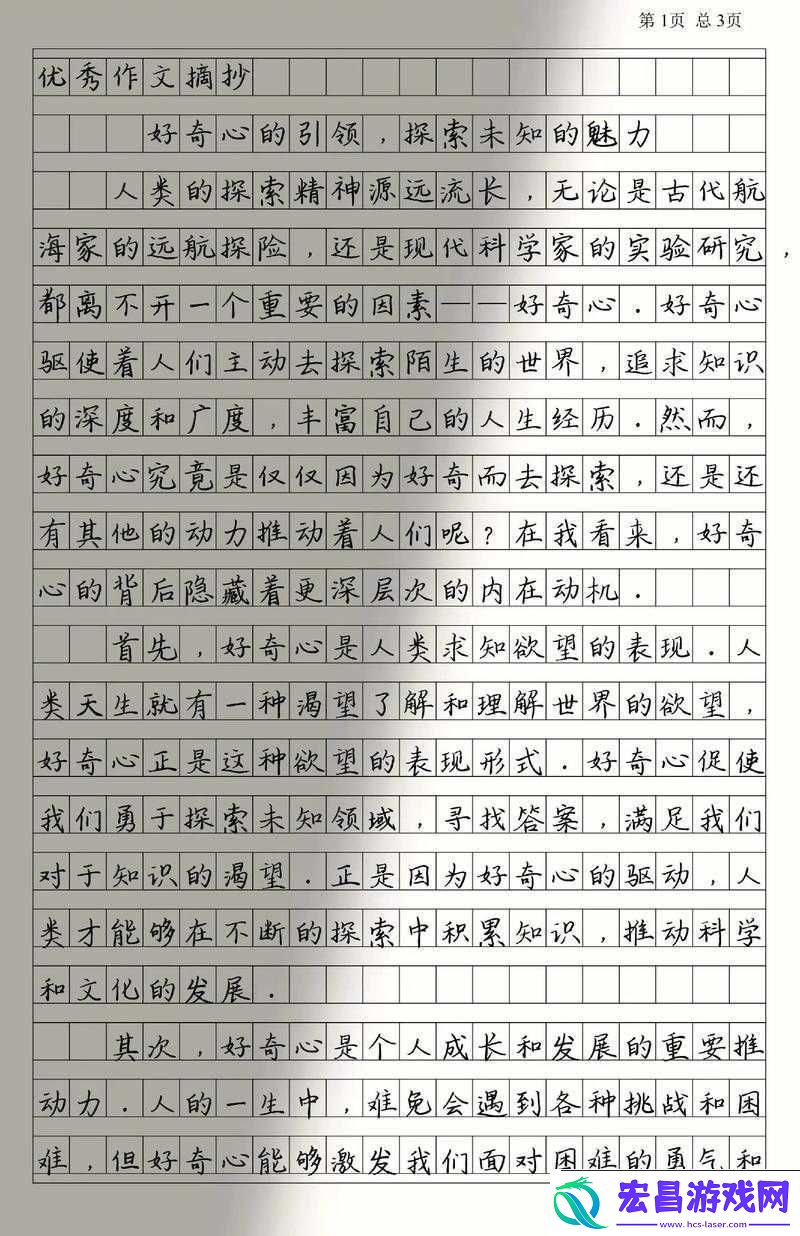 第 1页 总 3页
优秀作文摘抄
好奇心的引领，探索未知的魅力
人类的探索精神源远流长，无论是古代航
海家的远航探险，还是现代科学家的实验研究，
都离不开一个重要的因素——好奇心．好奇心
驱使着人们主动去探索陌生的世界，追求知识
的深度和广度，丰富自己的人生经历．然而，
好奇心究竟是仅仅因为好奇而去探索，还是还
有其他的动力推动着人们呢？在我看来，好奇
心的背后隐藏着更深层次的内在动机．
首先，好奇心是人类求知欲望的表现．人
类天生就有一种渴望了解和理解世界的欲望，
好奇心正是这种欲望的表现形式．好奇心促使
我们勇于探索未知领域，寻找答案，满足我们
对于知识的渴望．正是因为好奇心的驱动，人
类才能够在不断的探索中积累知识，推动科学
和文化的发展．
其次，好奇心是个人成长和发展的重要推
动力．人的一生中，难免会遇到各种挑战和困
难，但好奇心能够激发我们面对困难的勇气和
宏昌游戏网
www.hcs-laser.com